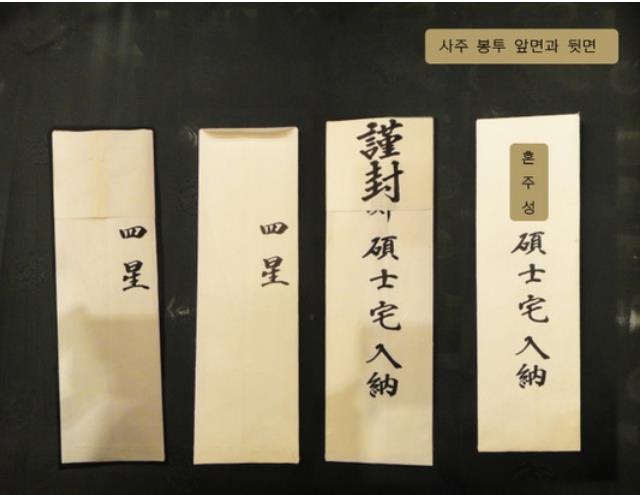 사주 봉투 앞면과 뒷면
四星
四星
謹封
碩士宅入納
혼주성
碩士宅入納